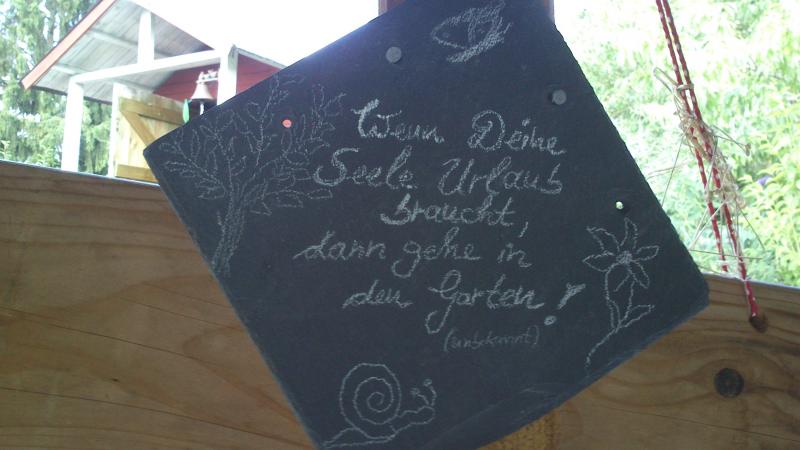 Wenn Deine
Seele Urlaub
braucht,
dann gehe in
den Garten!
(unbekannt)